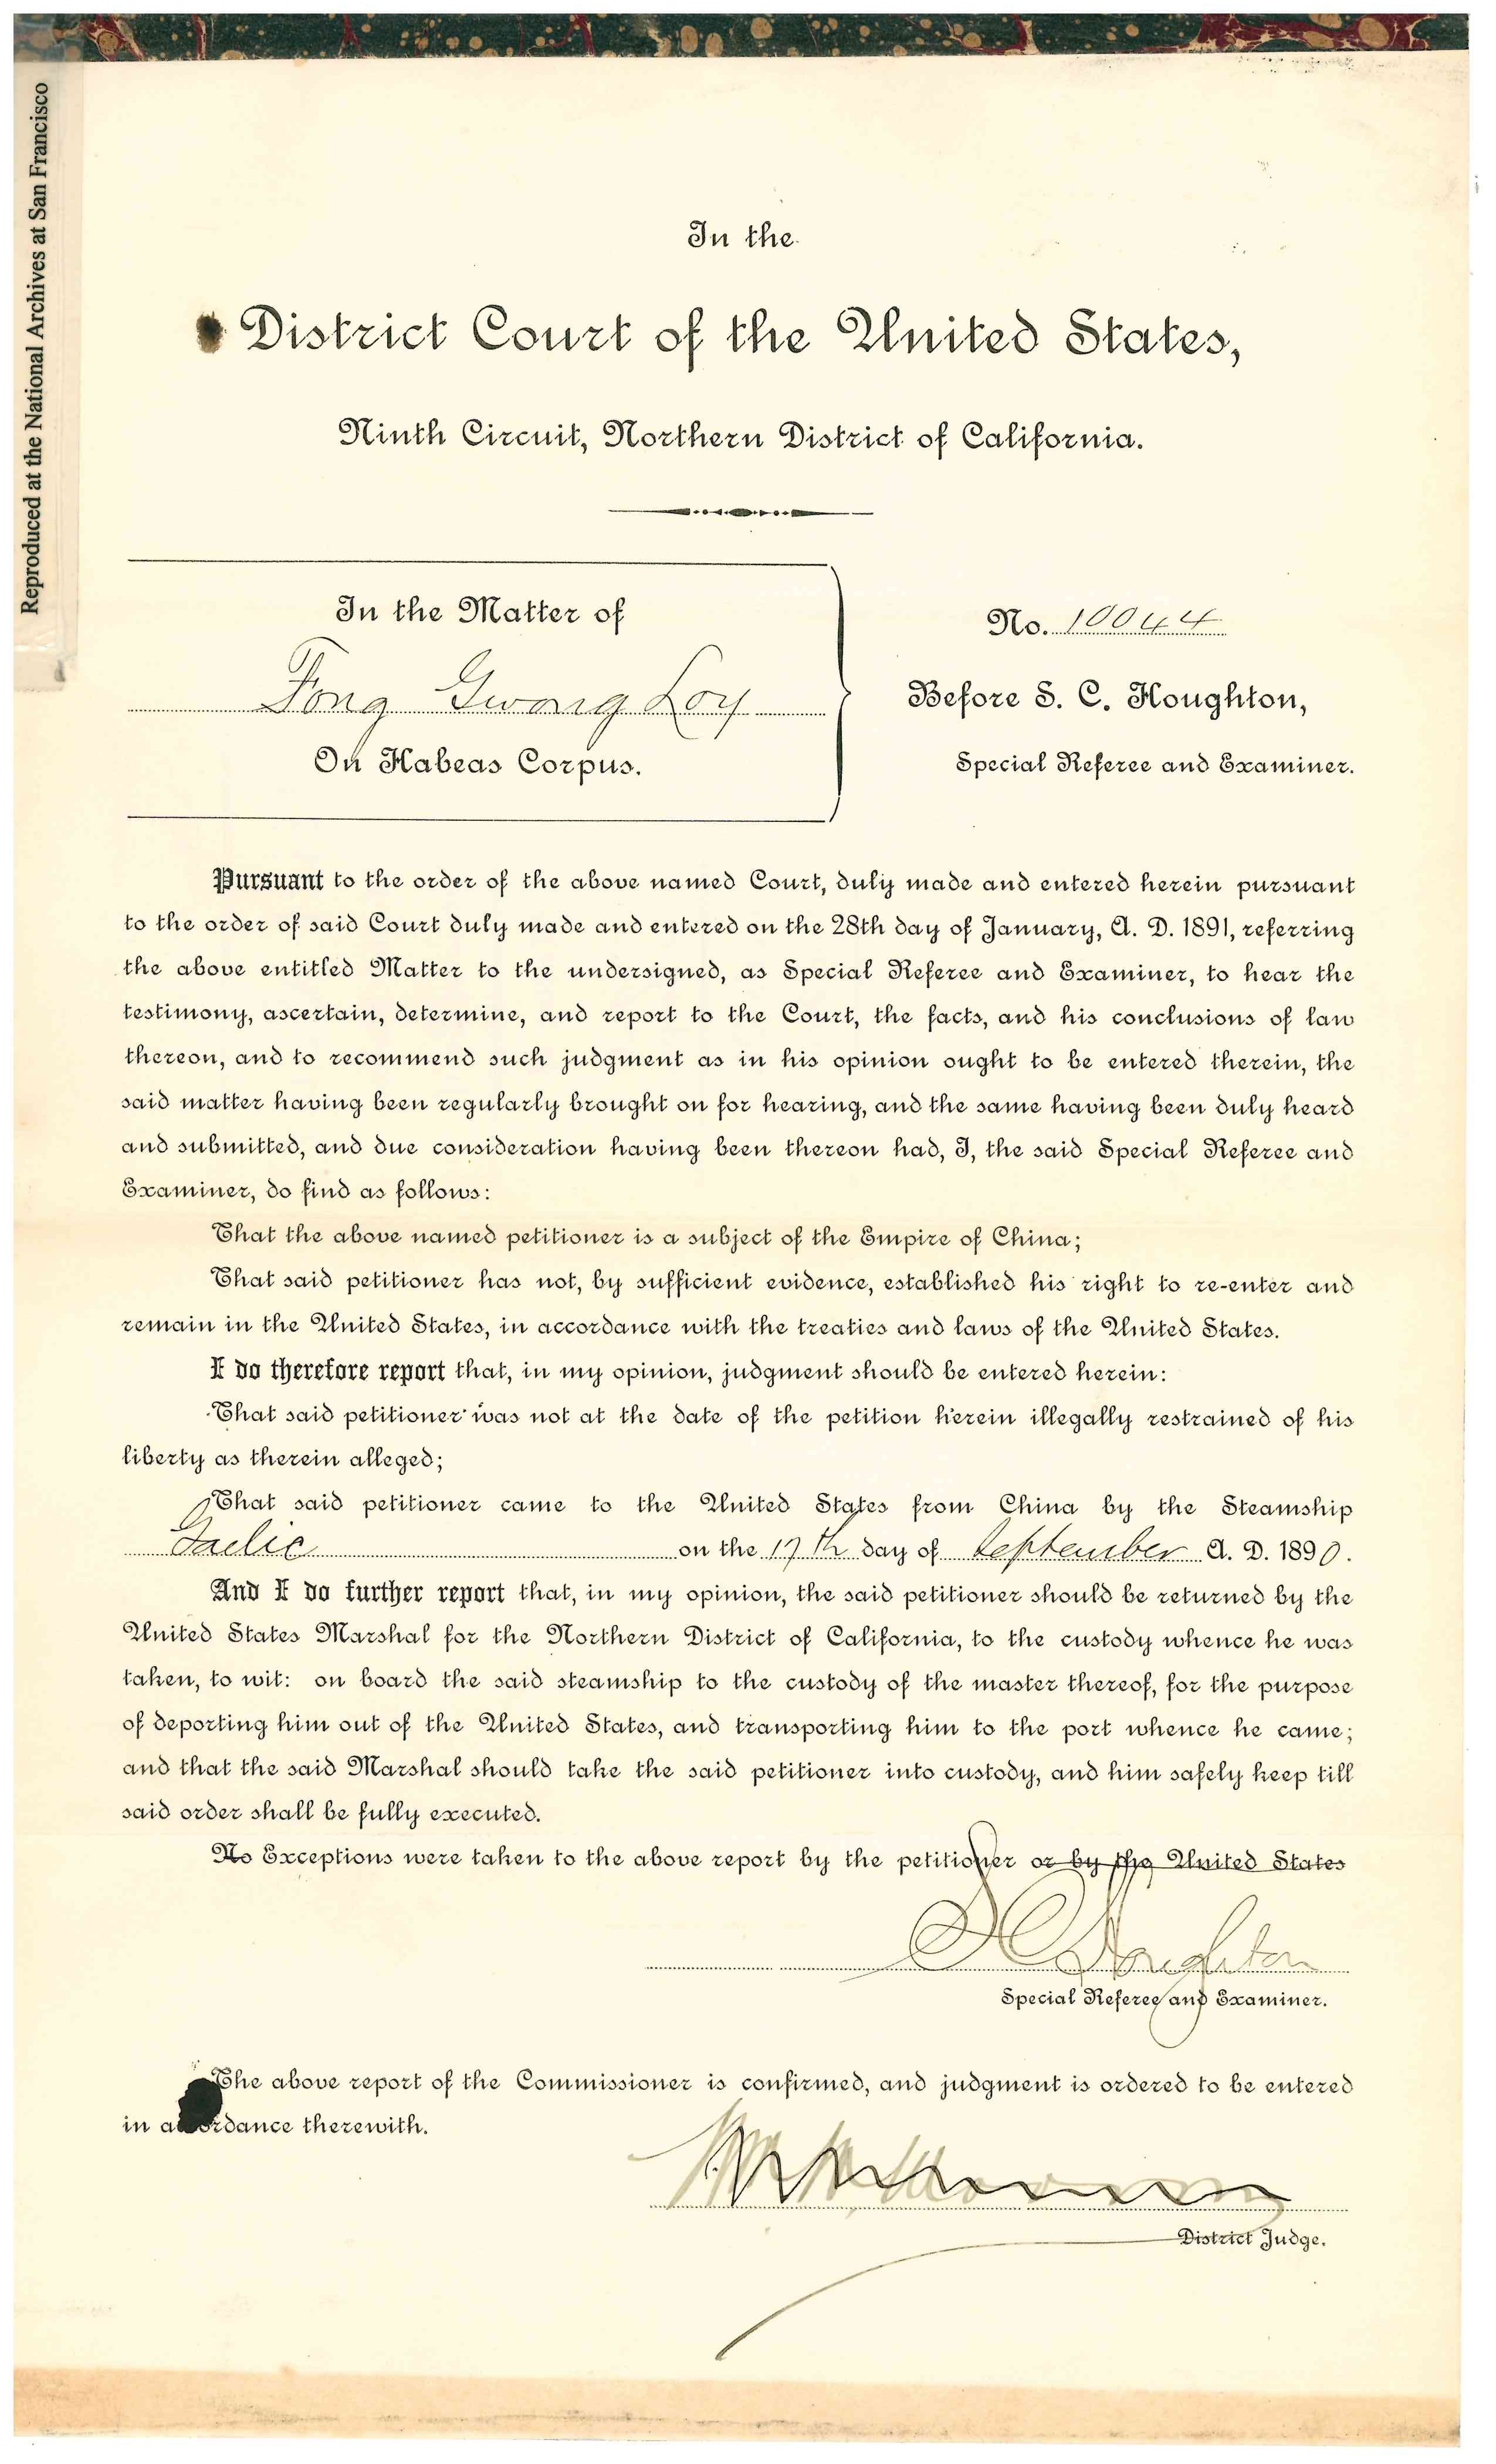 Reproduced at the National Archives at San Francisco
In the
District Court of the United States,
Ninth Circuit, Northern District of California.
In the Matter of
Fong Gwong Loy
On Habeas Corpus.
No. 10044
Before S. C. Houghton,
Special Referee and Examiner.
Pursuant to the order of the above named Court, duly made and entered herein pursuant
to the order of said Court duly made and entered on the 28th day of January, A. D. 1891, referring
the above entitled Matter to the undersigned, as Special Referee and Examiner, to hear the
testimony, ascertain, determine, and report to the Court, the facts, and his conclusions of law
thereon, and to recommend such judgment as in his opinion ought to be entered therein, the
said matter having been regularly brought on for hearing, and the same having been duly heard
and submitted, and due consideration having been thereon had, I, the said Special Referee and
Examiner, do find as follows:
That the above named petitioner is a subject of the Empire of China;
That said petitioner has not, by sufficient evidence, established his right to re-enter and
remain in the United States, in accordance with the treaties and laws of the United States.
I do therefore report that, in my opinion, judgment should be entered herein:
That said petitioner was not at the date of the petition herein illegally restrained of his
liberty as therein alleged;
That said petitioner came to the United States from China by the Steamship
Gaelic on the 17th day of September A. D. 1890.
And I do further report that, in my opinion, the said petitioner should be returned by the
United States Marshal for the Northern District of California, to the custody whence he was
taken, to wit: on board the said steamship to the custody of the master thereof, for the purpose
of deporting him out of the United States, and transporting him to the port whence he came;
and that the said Marshal should take the said petitioner into custody, and him safely keep till
said order shall be fully executed.
No Exceptions were taken to the above report by the petitioner or by the United States
S C Houghton
Special Referee and Examiner.
The above report of the Commissioner is confirmed, and judgment is ordered to be entered
in accordance therewith.
District Judge.